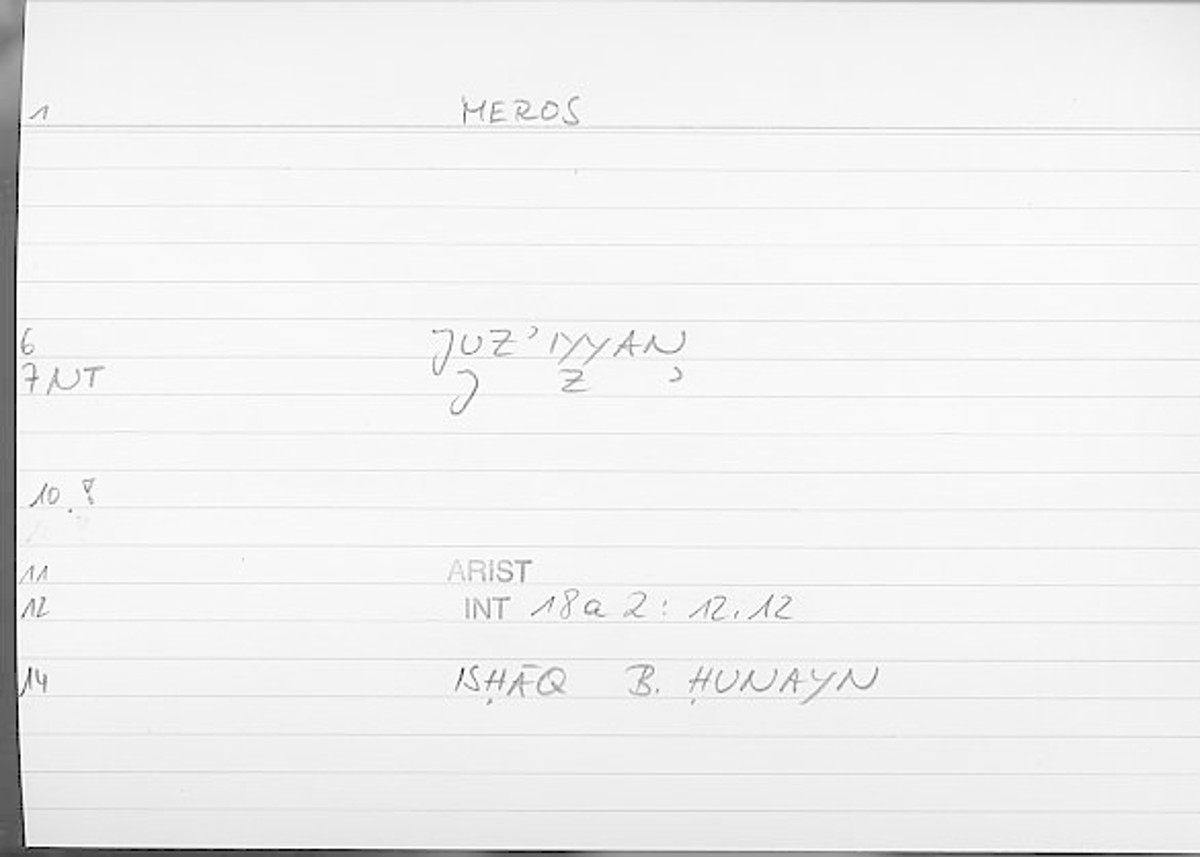 1 MEROS
6 JUZ’IYYAṆ
7 NT J Z ʾ
10.
11 ARIST
12 INT 18a 2: 12.12
14 ISḤĀQ B. ḤUNAYN